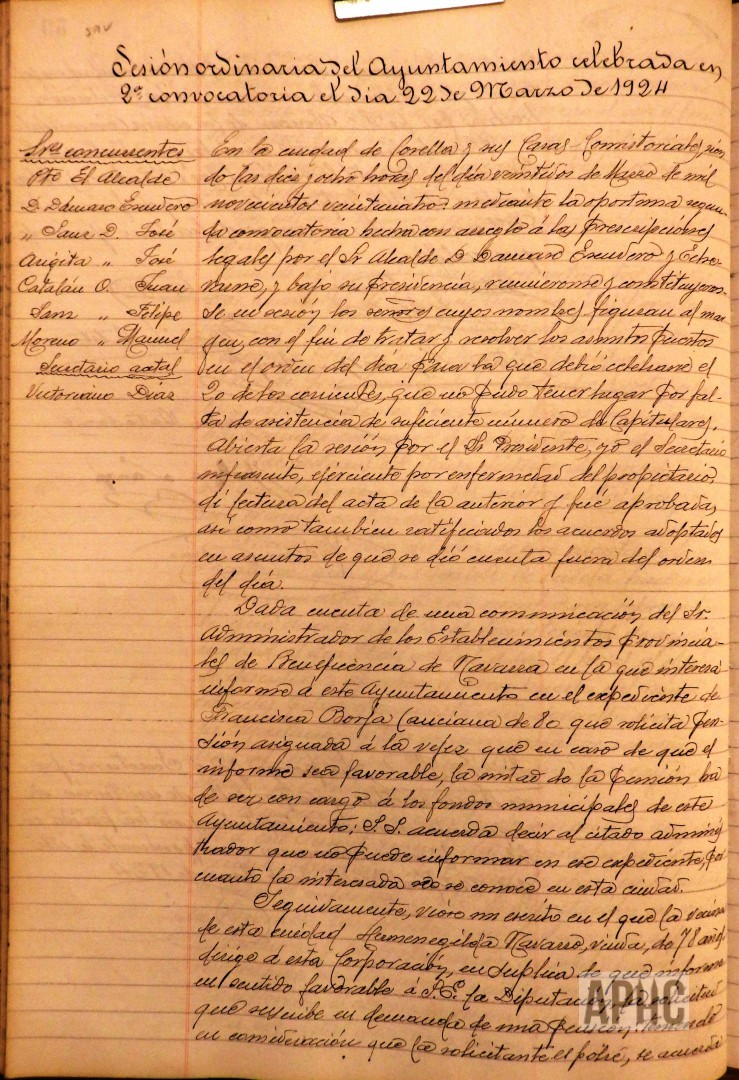 Sesión ordinaria del Ayuntamiento celebrada en
2ª convocatoria el día 22 de Marzo de 1924
Sres concurrentes
Pte El Alcalde
D. Dámaso Escudero
" Sanz D. José
Arigita " José
Catalán O. Juan
Sanz " Felipe
Moreno " Manuel
Secretario actal
Victoriano Díaz
En la ciudad de Corella y sus Casas-Consistoriales, sien
do las diez y ocho horas del día veintidos de Marzo de mil
novecientos veinticuatro: mediante la oportuna segun
da convocatoria hecha con arreglo á las prescripciones
legales por el Sr Alcalde D. Damaso Escudero y Eche-
y bajo su presidencia, reunieronse y constituyeron-
se en sesión los señores cuyos nombres figuran al mar
gen, con el fin de tratar y resolver los asuntos puestos
en el orden del día para la que debió celebrarse el
20 de los corrientes, que no pudo tener lugar por fal-
ta de asistencia de suficiente número de Capitulares.
Abierta la sesión por el Sr Presidente, yo el Secretario
infrascrito, ejerciente por enfermedad del propietario,
dí lectura del acta de la anterior y fué aprobada,
así como tambien ratificados los acuerdos adoptados
en asuntos de que se dió cuenta fuera del orden
del día.
Dada cuenta de una comunicación del Sr.
Administrador de los Establecimientos Provincia-
les de Beneficencia de Navarra en la que interesa
informe á este Ayuntamiento en el expediente de
Francisca Borja (anciana de 80 que solicita pen-
sión asignada á la vejez que en caso de que el
informe sea favorable, la mitad de la pensión ha
de ser con cargo á los fondos municipales de este
Ayuntamiento; S.S. acuerda decir al citado adminis
trador que no puede informar en ese expediente, por
cuanto la interesada no se conoce en esta ciudad.
Seguidamente, vióse un escrito en el que la vecina
de esta ciudad Hermenegilda Navarro, viuda, de 78 años
dirige a esta Corporación, en súplica de que informe
en sentido favorable á S.E. la Diputación la solicitud
que suscribe en demanda de una pensión, teniendo
en consideración que la solicitante es pobre, se acuerda
APHC